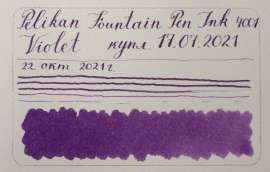 Pelikan Fountain Pen Ink 4001
Violet купл 17.07.2021
22 окт 2021 г.